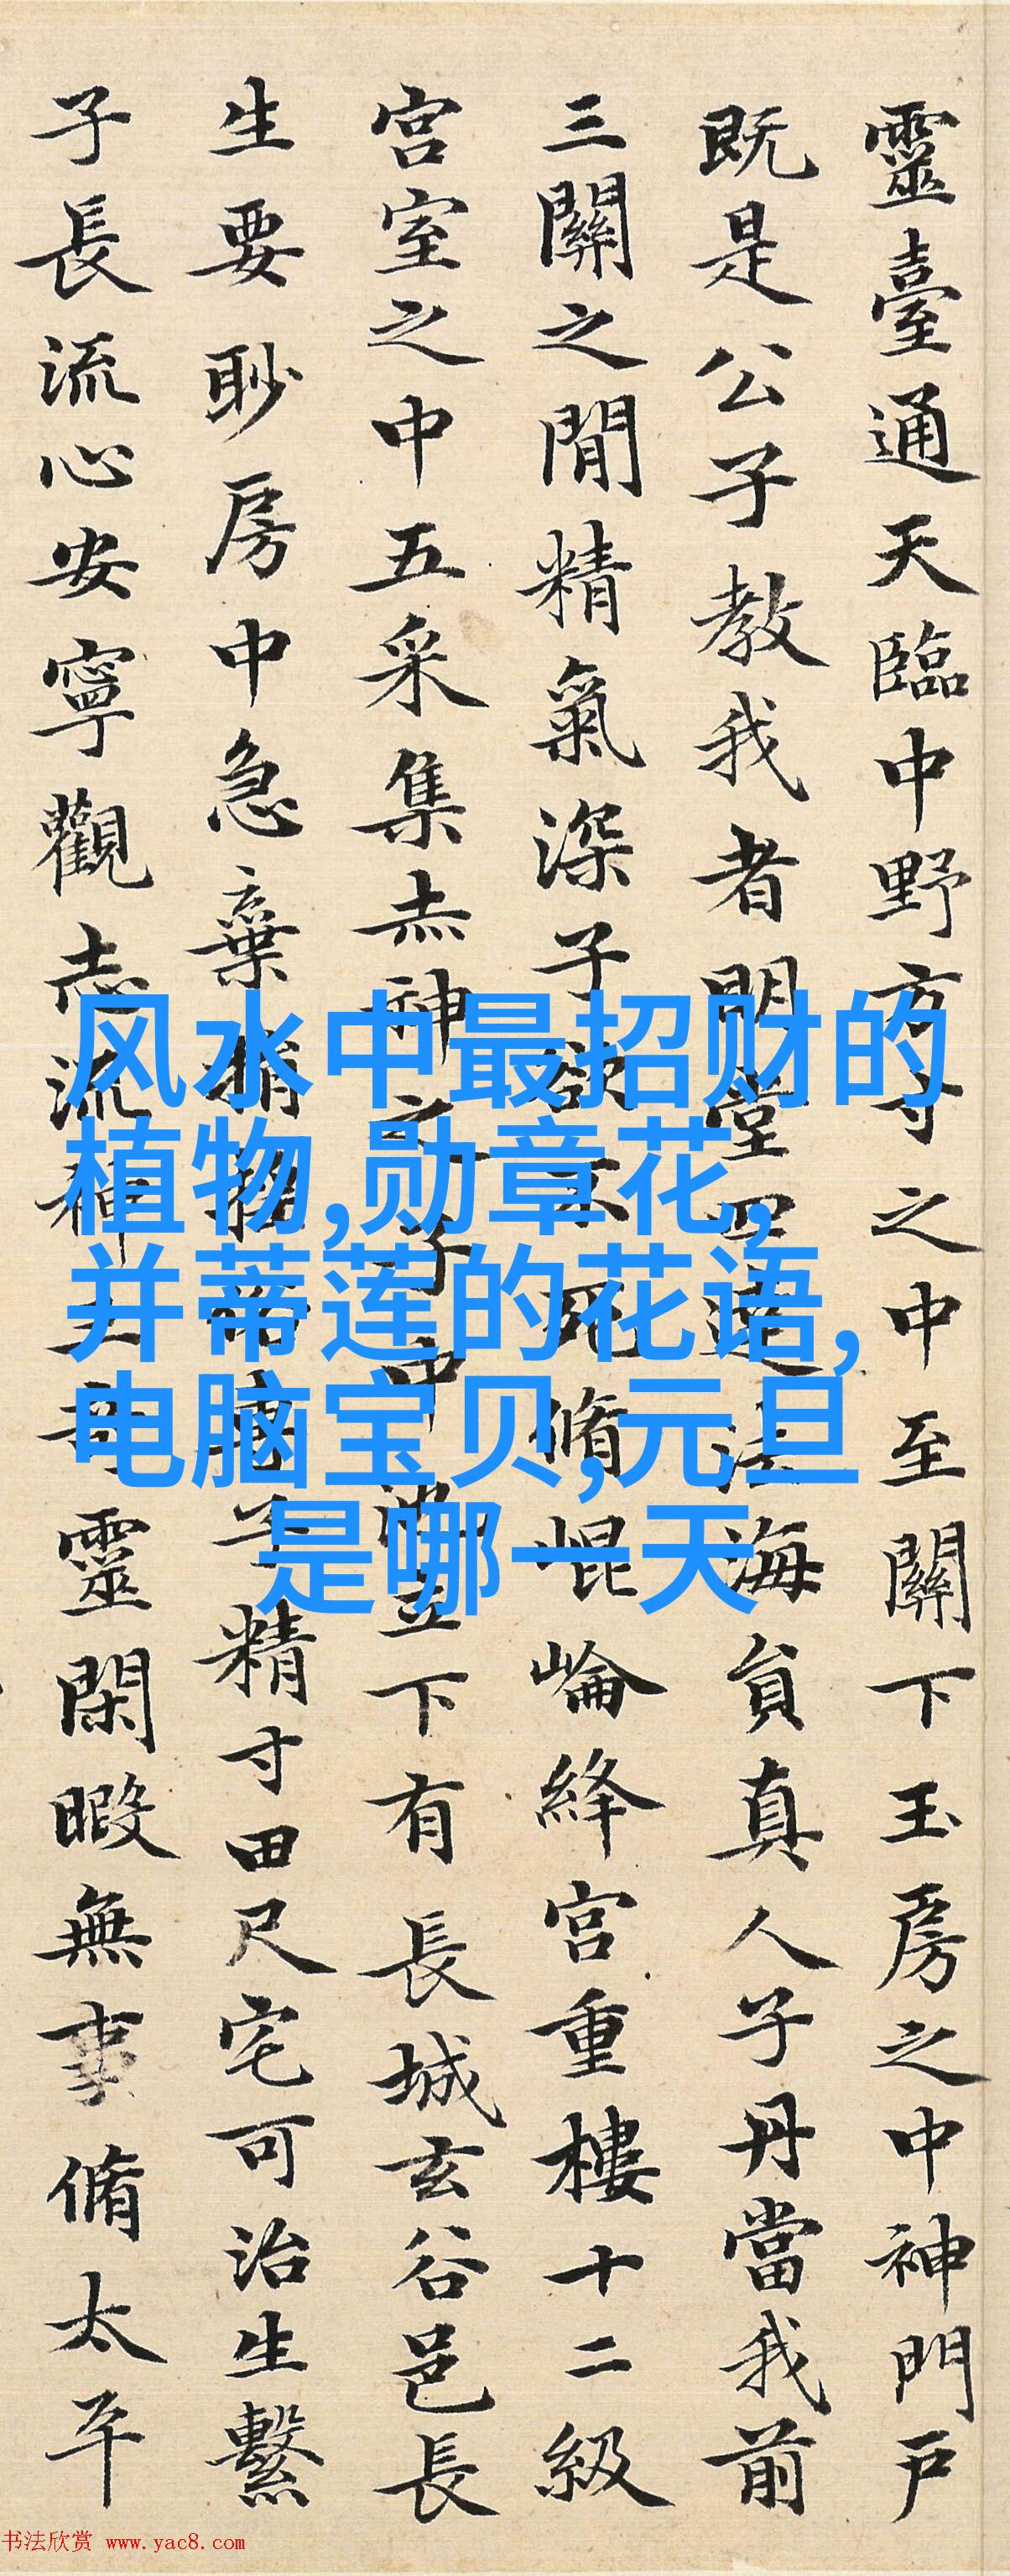 靈臺通天臨中野方寸之中至關下玉房之中神門戶
既是公子教我者明堂四達法海員真人子丹當我前
三關之閒精氣深子欲不死脩崐崘絳宮重樓十二級
宮室之中五采集赤神之子中池立下有長城玄谷邑長
生要眇房中急棄捐專子精寸田尺宅可治生繫
子長流心安寧觀志流神三奇靈閑暇無事脩太平
风水中最招财的
植物,勋章花,
并蒂莲的花语,
电脑宝贝,元旦
是哪一天
书法欣赏 www.yac8.com